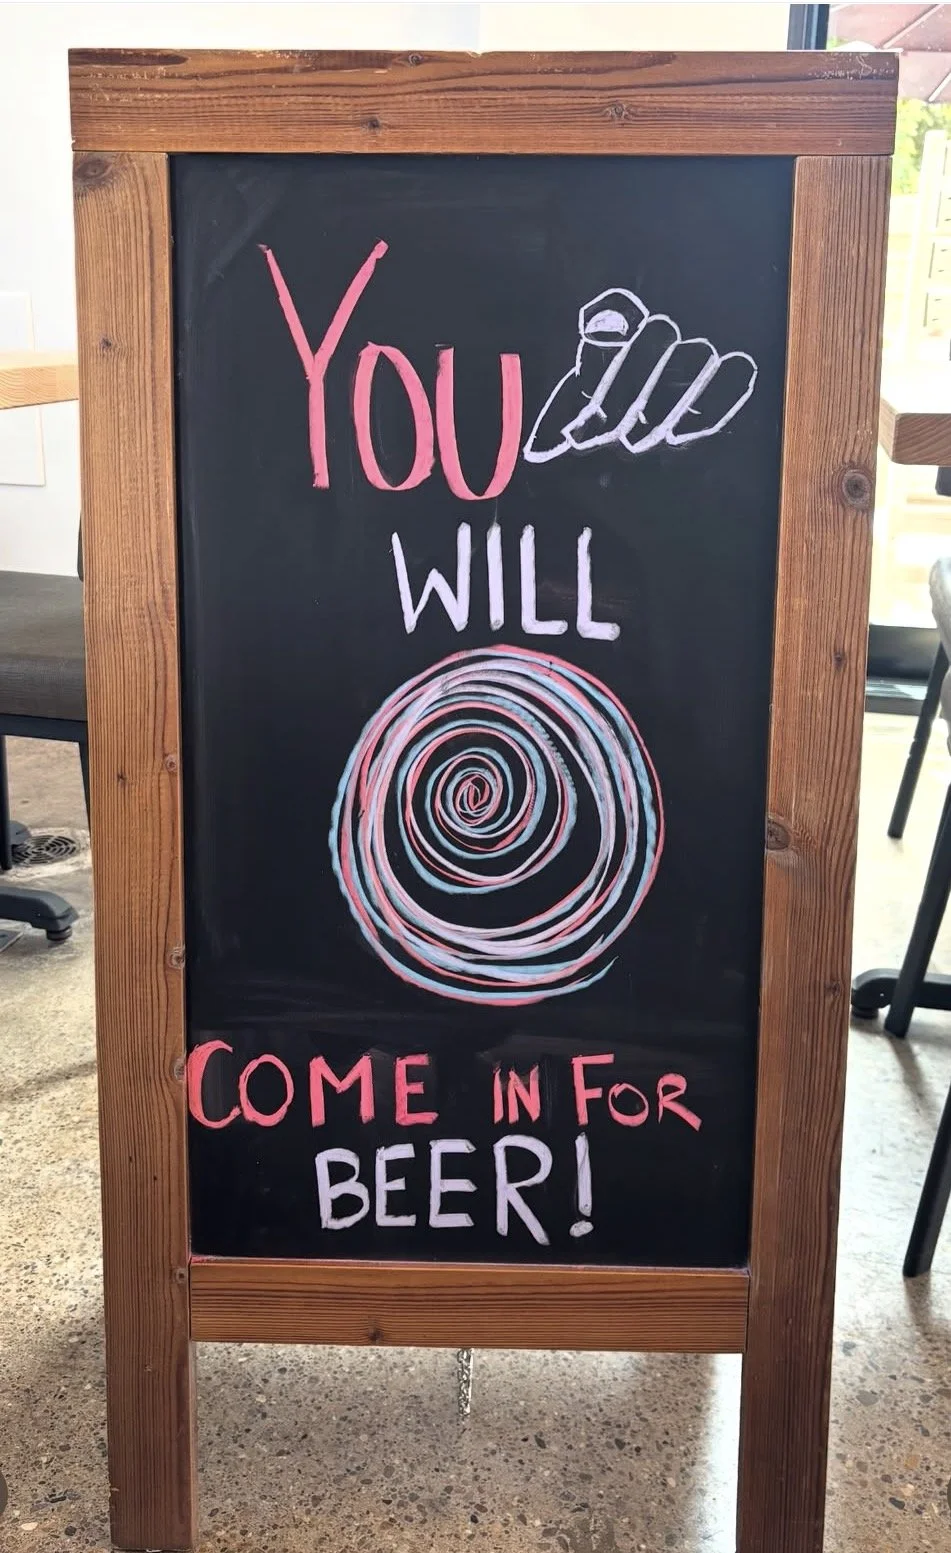 YOU
WILL
COME IN FOR
BEER!